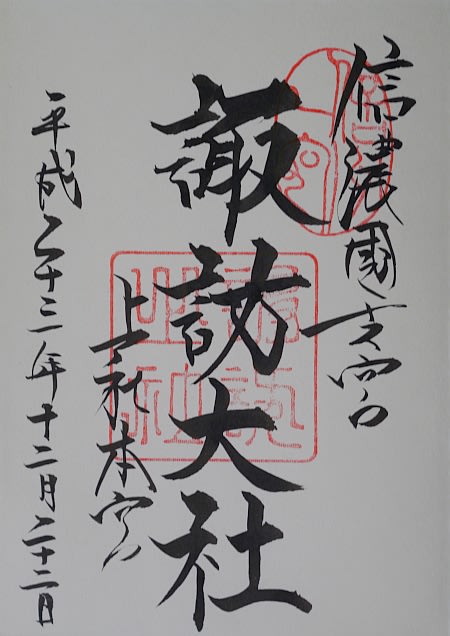 信濃國一之宮
諏訪大社
上社本宮
平成二十三年十二月二十二日